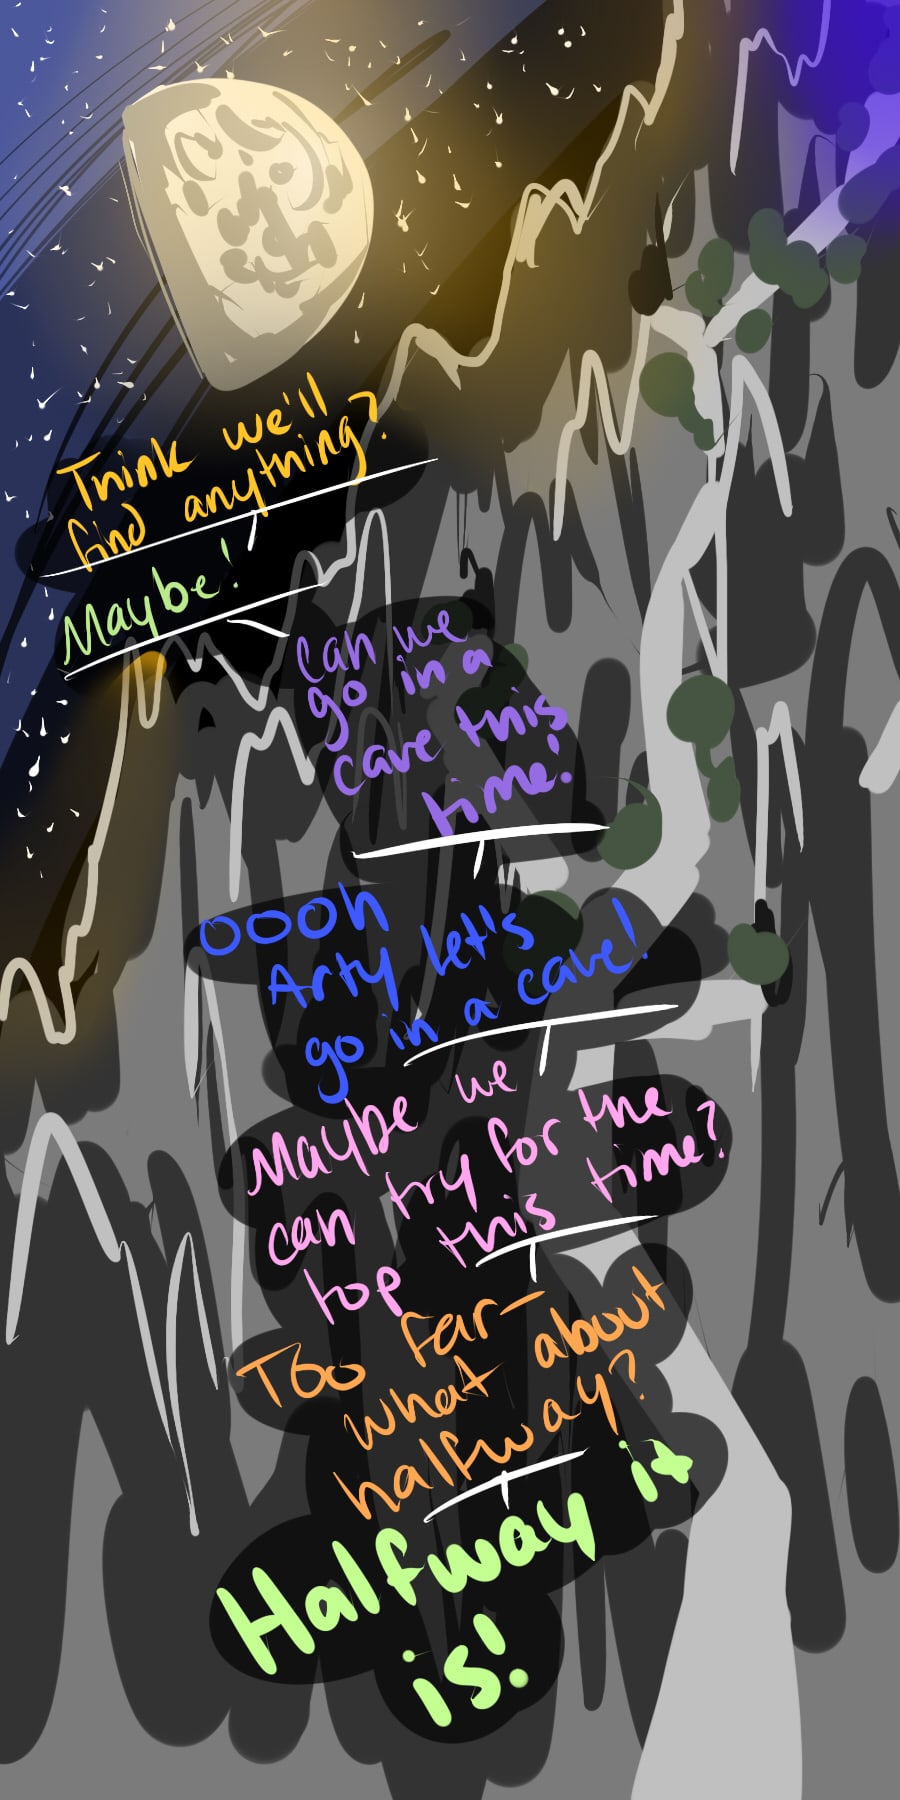 Think we'll
find anything?
Maybe!
Can we
go in a
cave this
time!
OOOh
Arty let's
go in a cave!
Maybe we
can try for the
top this time?
Too far-
what about
halfway?
Halfway it
is!